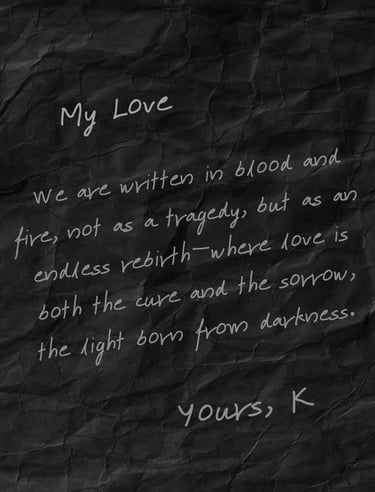 My Love
We are written in blood and
fire, not as a tragedy, but as an
endless rebirth—where love is
both the cure and the sorrow,
the light born from darkness.
yours, K